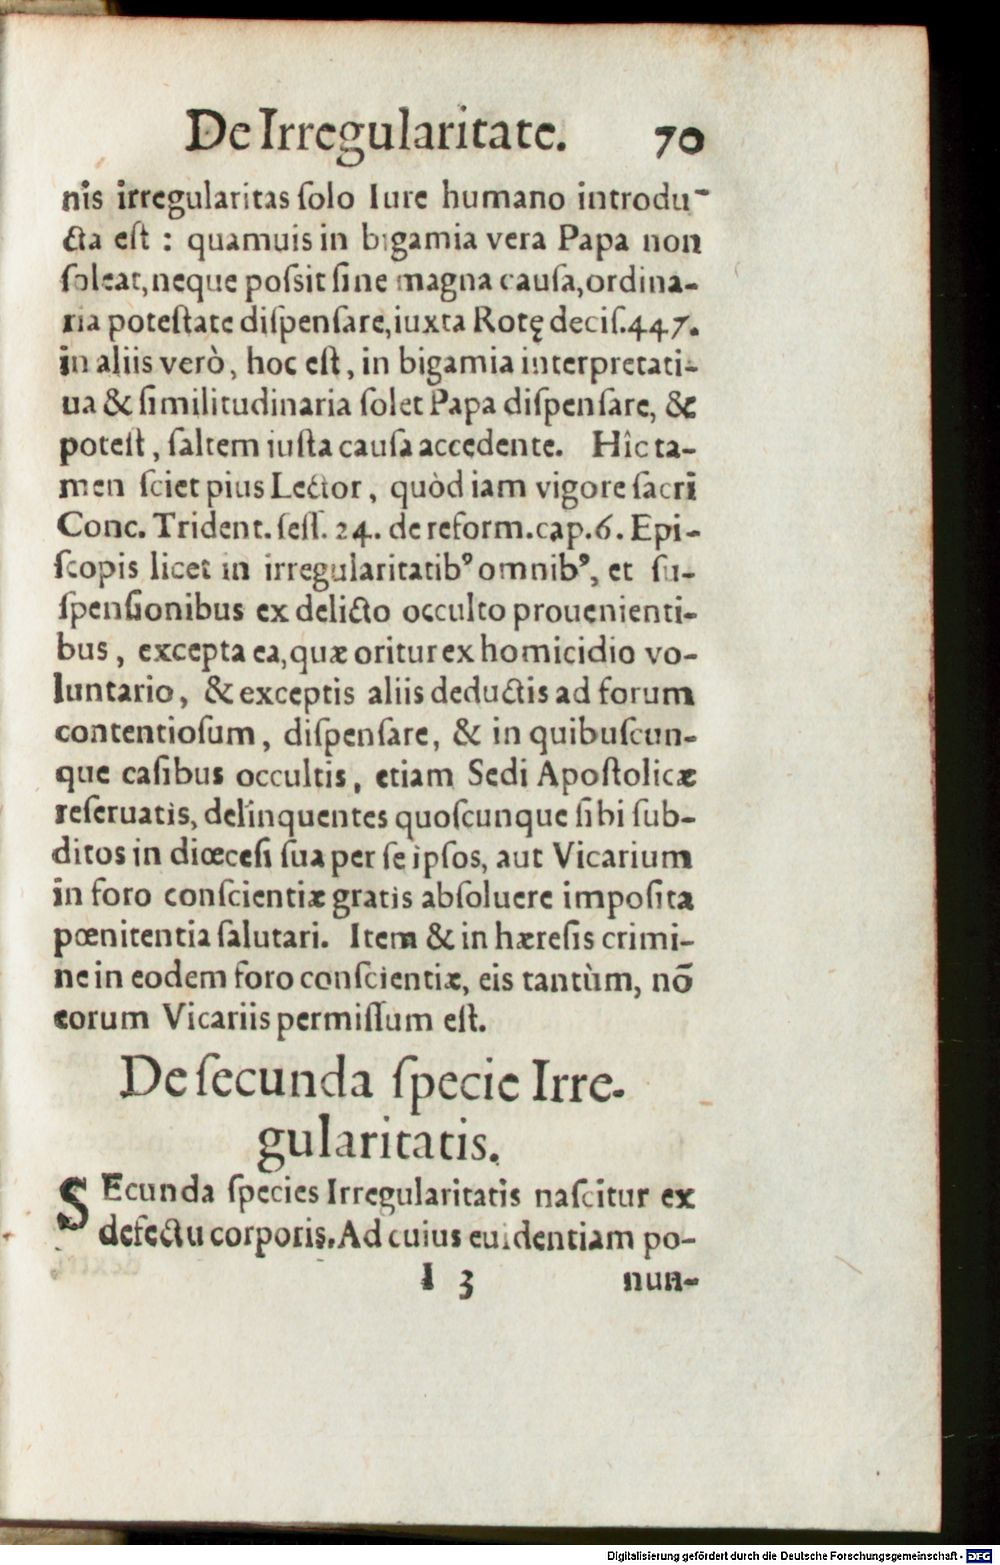 De Irregularitate. 70
nis irregularitas ſolo Iure humano introdu-
cta eſt : quamuis in bigamia vera Papa non
ſoleat, neque poſsit ſine magna cauſa, ordina-
ria poteſtate diſpenſare, iuxta Rotę deciſ. 447.
in aliis verò, hoc eſt, in bigamia interpretati-
ua & ſimilitudinaria ſolet Papa diſpenſare, &
poteſt, ſaltem iuſta cauſa accedente. Hîc ta-
men ſciet pius Lector, quòd iam vigore ſacri
Conc. Trident. ſeſſ. 24. de reform. cap. 6. Epi-
ſcopis licet in irregularitatibꝰ omnibꝰ, et ſu-
ſpenſionibus ex delicto occulto prouenienti-
bus, excepta ea, quæ oritur ex homicidio vo-
luntario, & exceptis aliis deductis ad forum
contentioſum, diſpenſare, & in quibuſcun-
que caſibus occultis, etiam Sedi Apoſtolicæ
reſeruatis, delinquentes quoſcunque ſibi ſub-
ditos in diœceſi ſua per ſe ipſos, aut Vicarium
in foro conſcientiæ gratis abſoluere impoſita
pœnitentia ſalutari. Item & in hæreſis crimi-
ne in eodem foro conſcientiæ, eis tantùm, nō
eorum Vicariis permiſſum eſt.
De ſecunda ſpecie Irre-
gularitatis.
SEcunda ſpecies Irregularitatis naſcitur ex
defectu corporis. Ad cuius euidentiam po-
I 3 nun-
Digitalisierung gefördert durch die Deutsche Forschungsgemeinschaft - DFG